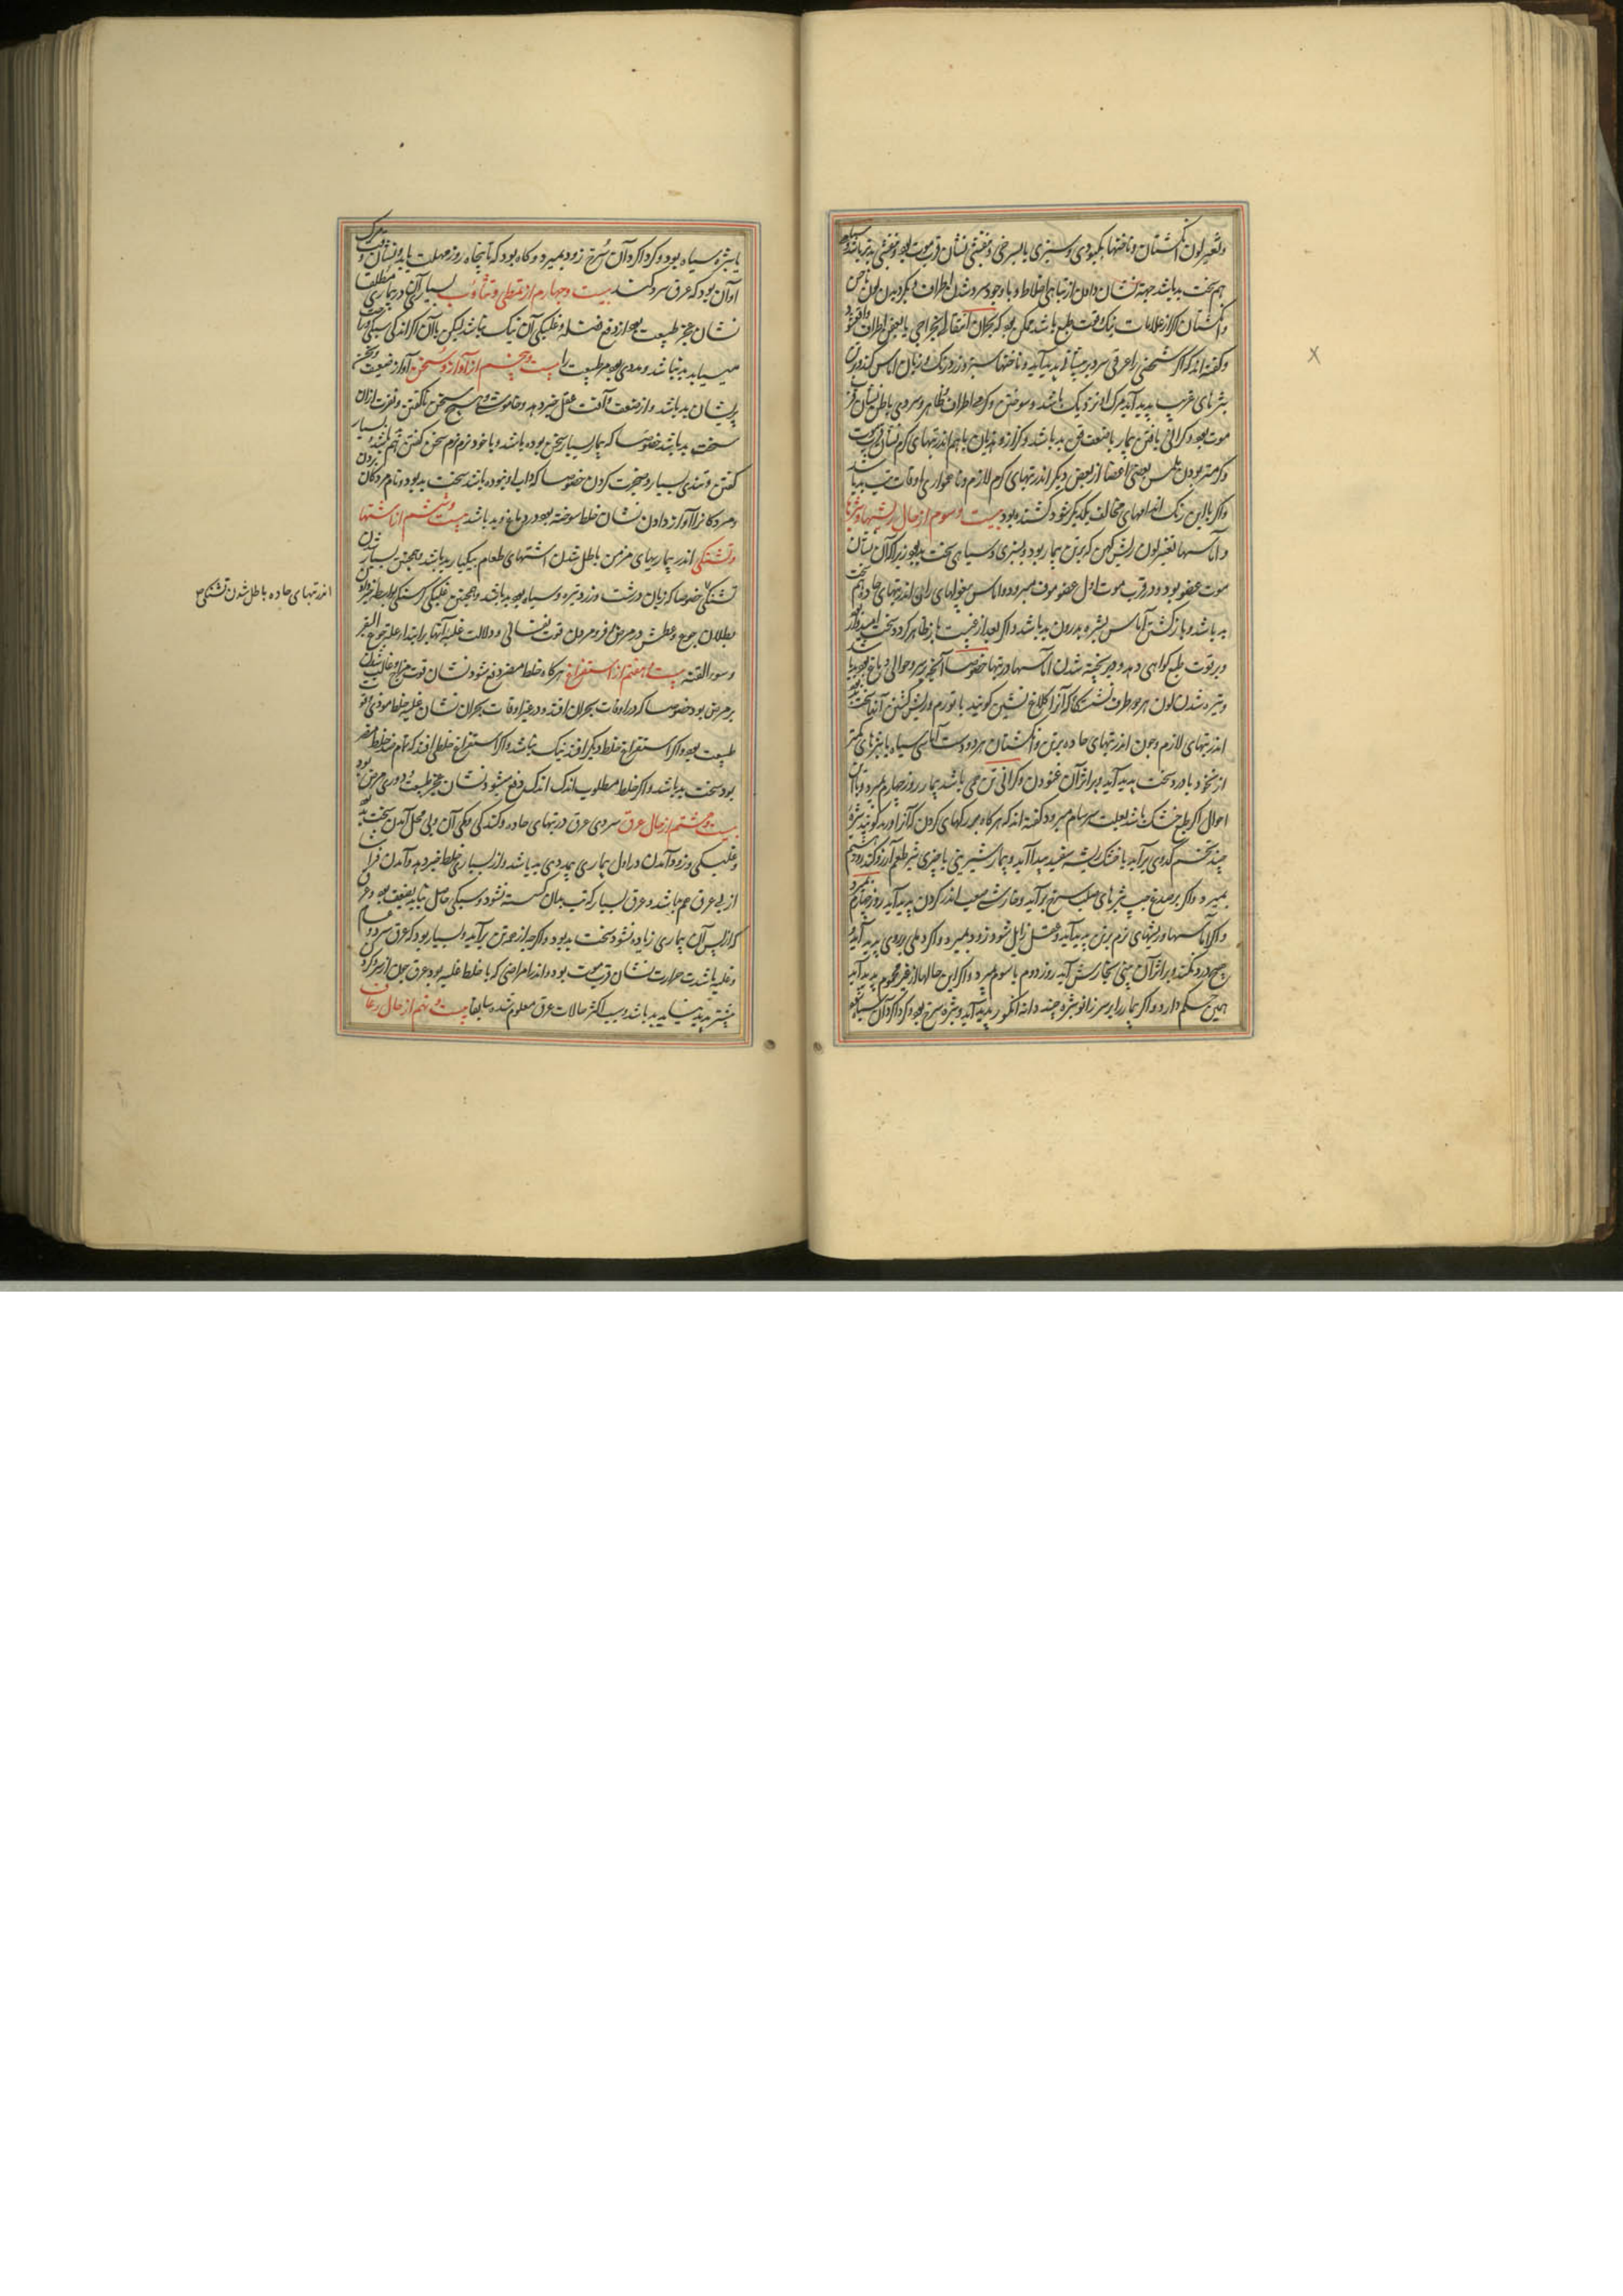 وتغیر لون انگشتان و ناخنها بکبودی و سبزی یا بسرخی و بنفشی نشان قرب موت بود و بنفشی بدتر باشد و سیاه
هم سخت بد باشد جهة نشان دادن از تباهی اخلاط و با وجود سرد شدن اطراف و دیگر دیدن لون ناخن
و انگشتان اگر از علامات نیک و قوت طبع باشد ممکن بود که بحران انتقال بخراجی یا ببعض اطراف واقع شود
و گفته‌اند که اگر شخصی را عرقی سرد بر پیشانی پدید آید و ناخنها سبز و زرد رنگ و زبان اماس کند و بر تن
بثرهای غریب پدید آید مرگ او نزدیک باشد و سوختن و گرمی اطراف ظاهر و سردی باطن نشان قرب
موت بود و گرانی یافتن بیمار با ضعف تن بد باشد و کزاز و هذیان با هم اندر تبهای گرم نشان موت
و گرمتر بودن ملمس بعضی اعضا از بعض دیگر اندر تبهای گرم لازم و ناهمواری اوقات تب بد باشد
و اگر با این رنگ اندامهای مخالف یکدیگر شود کشنده بود بیست و سوم از حال ریشها و بثرها
و اماسها تغیر لون ریش کهن که بر تن بیمار بود و بسبزی و سیاهی سخت بد بود زیرا که آن نشان
موت عضو بود و در قرب موت اول عضو موف میرد و اماس بیخ رانهای رانی اندر تبهای حاده هم سخت
بد باشد و باز گشتن آماس و بثره بدرون بد باشد و اگر بعد از غیبت باز ظاهر گردد سخت امیدوار بود
و بر قوت طبع گواهی دهد و دیر پخته شدن اماسها در تبها خصوصا آنچه بر سر و حوالی دماغ بود بد باشد
و تیره شدن لون هر دو طرف نشستگاه که آنرا کلاغ نشین گویند با تورم و ریش گشتن آنها سخت بد بود
اندر تبهای لازم و چون اندر تبهای حاده بر تن و انگشتان هر دو دست آماسی سیاه یا بثرهای کمتر
از نخود با درد سخت پدید آید و بر اثر آن غنودن و گرانی تن می باشد بیمار روز چهارم بمیرد و با این
احوال اگر طبع خشک باشد بعلت سرسام میرد و گفته‌اند که هرگاه بر رگهای گردن که آنرا ورید گویند بثره
چند تخم کدوی برآید یا خشک ریشه سفید پیدا آید و بیمار شیرینی یا چیزی شیر طعم آرزو کند روز هشتم
بمیرد و اگر بر صدغ چپ بثرهای صلب سرخ برآید و خارش صعب اندر گردن پدید آید روز چهارم بمیرد
و اگر اماسها و ریشهای نرم بر تن پدید آید و عقل زایل شود زود بمیرد و اگر دملی بر روی پدید آید و
هیچ درد نکند و بر اثر آن بینی بخارش آید روز دوم یا سوم بمیرد و اگر این حالها از غیر محموم پدید آید
همین حکم دارد و اگر بیمار را بر سر زانو بثره چند دانه انگور پدید آید و بثره سرخ بود و گرداگرد آن سیاه بود
یا بثره سیاه بود و گرداگرد آن سرخ زود بمیرد و گاه بود که تا پنجاه روز مهلت یابد و نشان وقت مرگ
او آن بود که عرق سرد کند بیست و چهارم از تمطی و تثاوب بسیاری آن در بیماری مطلقا
نشان عجز طبیعت بود از دفع فضله و غلبگی آن نیک نباشد لیکن با آن اگر اندک سبکی و راحت
می‌یابد بد نباشد و مددی بود مر طبیعت را بیست و پنجم از آواز و سخن آواز ضعیف و سخن
پریشان بد باشد و از ضعف و آفت عقل خبر دهد و خاموشی و هیچ سخن ناگفتن و نفرت از آن
سخت بد باشد خصوصا که بیمار بسیار سخن بوده باشد و با خود نرم نرم سخن گفتن هم بد باشد و بسیار
گفتن و تندی بسیار و ضجرت کردن خصوصا که داب او نبوده باشد سخت بد بود و نام مردگان بردن
و مردگانرا آواز دادن نشان خلط سوخته بود در دماغ و بد باشد بیست و ششم از اشتها
و تشنگی اندر بیماریهای مزمن باطل شدن اشتهای طعام بیکبار بد باشد و همچنین بسیار شدن
تشنگی خصوصا که زبان درشت و زرد و تیره و سیاه بود بد باشد و همچنین غلبگی گرسنگی
بطلان جوع و عطش در مرض و فرو مردن قوت نفسانی و دلالت غلبه آنها بر ابتداء علة جوع البقر
و سوء القنیه بیست و هفتم از استفراغ هرگاه خلط ممرض دفع شود نشان قوت مزاج و غالب شدن
بر مرض بود خصوصا که در اوقات بحران افتد و در غیر اوقات بحران نشان غلبه خلط موذی و قوت
طبیعت بود و اگر استفراغ خلط دیگر افتد نیک نباشد و اگر استفراغ خلطی افتد که تمام ضد خلط مضر
بود سخت بد باشد و اگر خلط مطلوب اندک اندک دفع میشود نشان عجز طبیعت و دوری مرض بود
بیست و هشتم از حال عرق سردی عرق در تبهای حاده و کندگی و کمی آن و بی محل آمدن سخت بد بود
و غلبگی و زود آمدن در اول بیماری بیمددی بد باشد و از بسیاری خلط خبر دهد و آمدن فراشا
از پی عرق هم بد باشد و عرق بسیار که تب بدان گسسته نشود و سبکی حاصل نیاید ضعیف بود و عرق
که از پس آن بیماری زیاده شود سخت بد بود و اگر چه از همه تن برآید و بسیار بود که عرق سرد و عام
و غلبه با شدت حرارت نشان قرب موت بود و اندر امراضی که با خلط غلبه بود عرق چون از سر و گردن
بیشتر پدید نیاید بد باشد و سبب اکثر حالات عرق معلوم شده سابقا بیست و نهم از حال رعاف
اندر تبهای حاده باطل شدن تشنگی